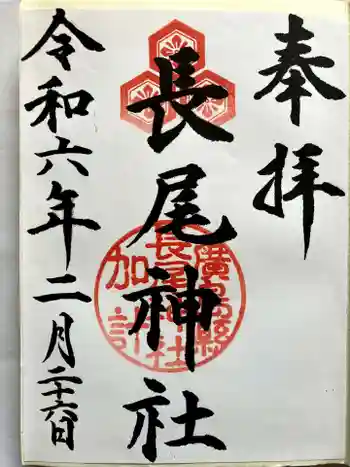 奉拝
長尾神社
廣島縣
長尾神社
加計
令和六年二月二十六日